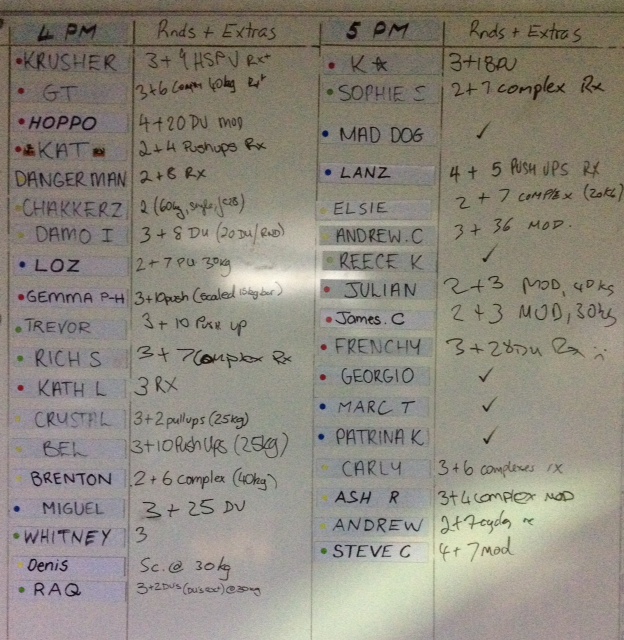 4 PM Rnds + Extras
KRUSHER 3+9 HSPU Rx+
GT 3+6 Complex 40kg Rx+
HOPPO 4+20 DU mod
KAT 2+4 Pushups Rx
DANGERMAN 2+8 Rx
CHAKKERZ 2 (60kg,
DAMO I 3+8 DU (20 DU/RND)
LOZ 2+7 PU 30kg
GEMMA P-H 3+10 push (scaled 15kg bar)
TREVOR 3+10 Push up
RICH S 3+7 Complex Rx
KATH L 3 RX
CRYSTAL 3+2 pullups (25kg)
BEL 3+10 Push Ups (25kg)
BRENTON 2+6 complex (40kg)
MIGUEL 3+25 DU
WHITNEY 3
Denis Sc. @ 30kg
RAQ 3+2 DU's @30kg
5 PM Rnds + Extras
K☆ 3+18DU
SOPHIE S 2+7 complex Rx
MAD DOG ✓
LANZ 4+5 PUSH UPS RX
ELSIE 2+7 COMPLEX (20kg)
ANDREW.C 3+36 MOD.
REECE K ✓
JULIAN 2+3 MOD, 40kg
James.C 2+3 MOD, 30kg
FRENCHY 3+28DU Rx
GEORGIO ✓
MARC T ✓
PATRINA K ✓
CARLY 3+6 complexes rx
ASH R 3+4 complex MOD
ANDREW 2+7
STEVE C 4+7 mod